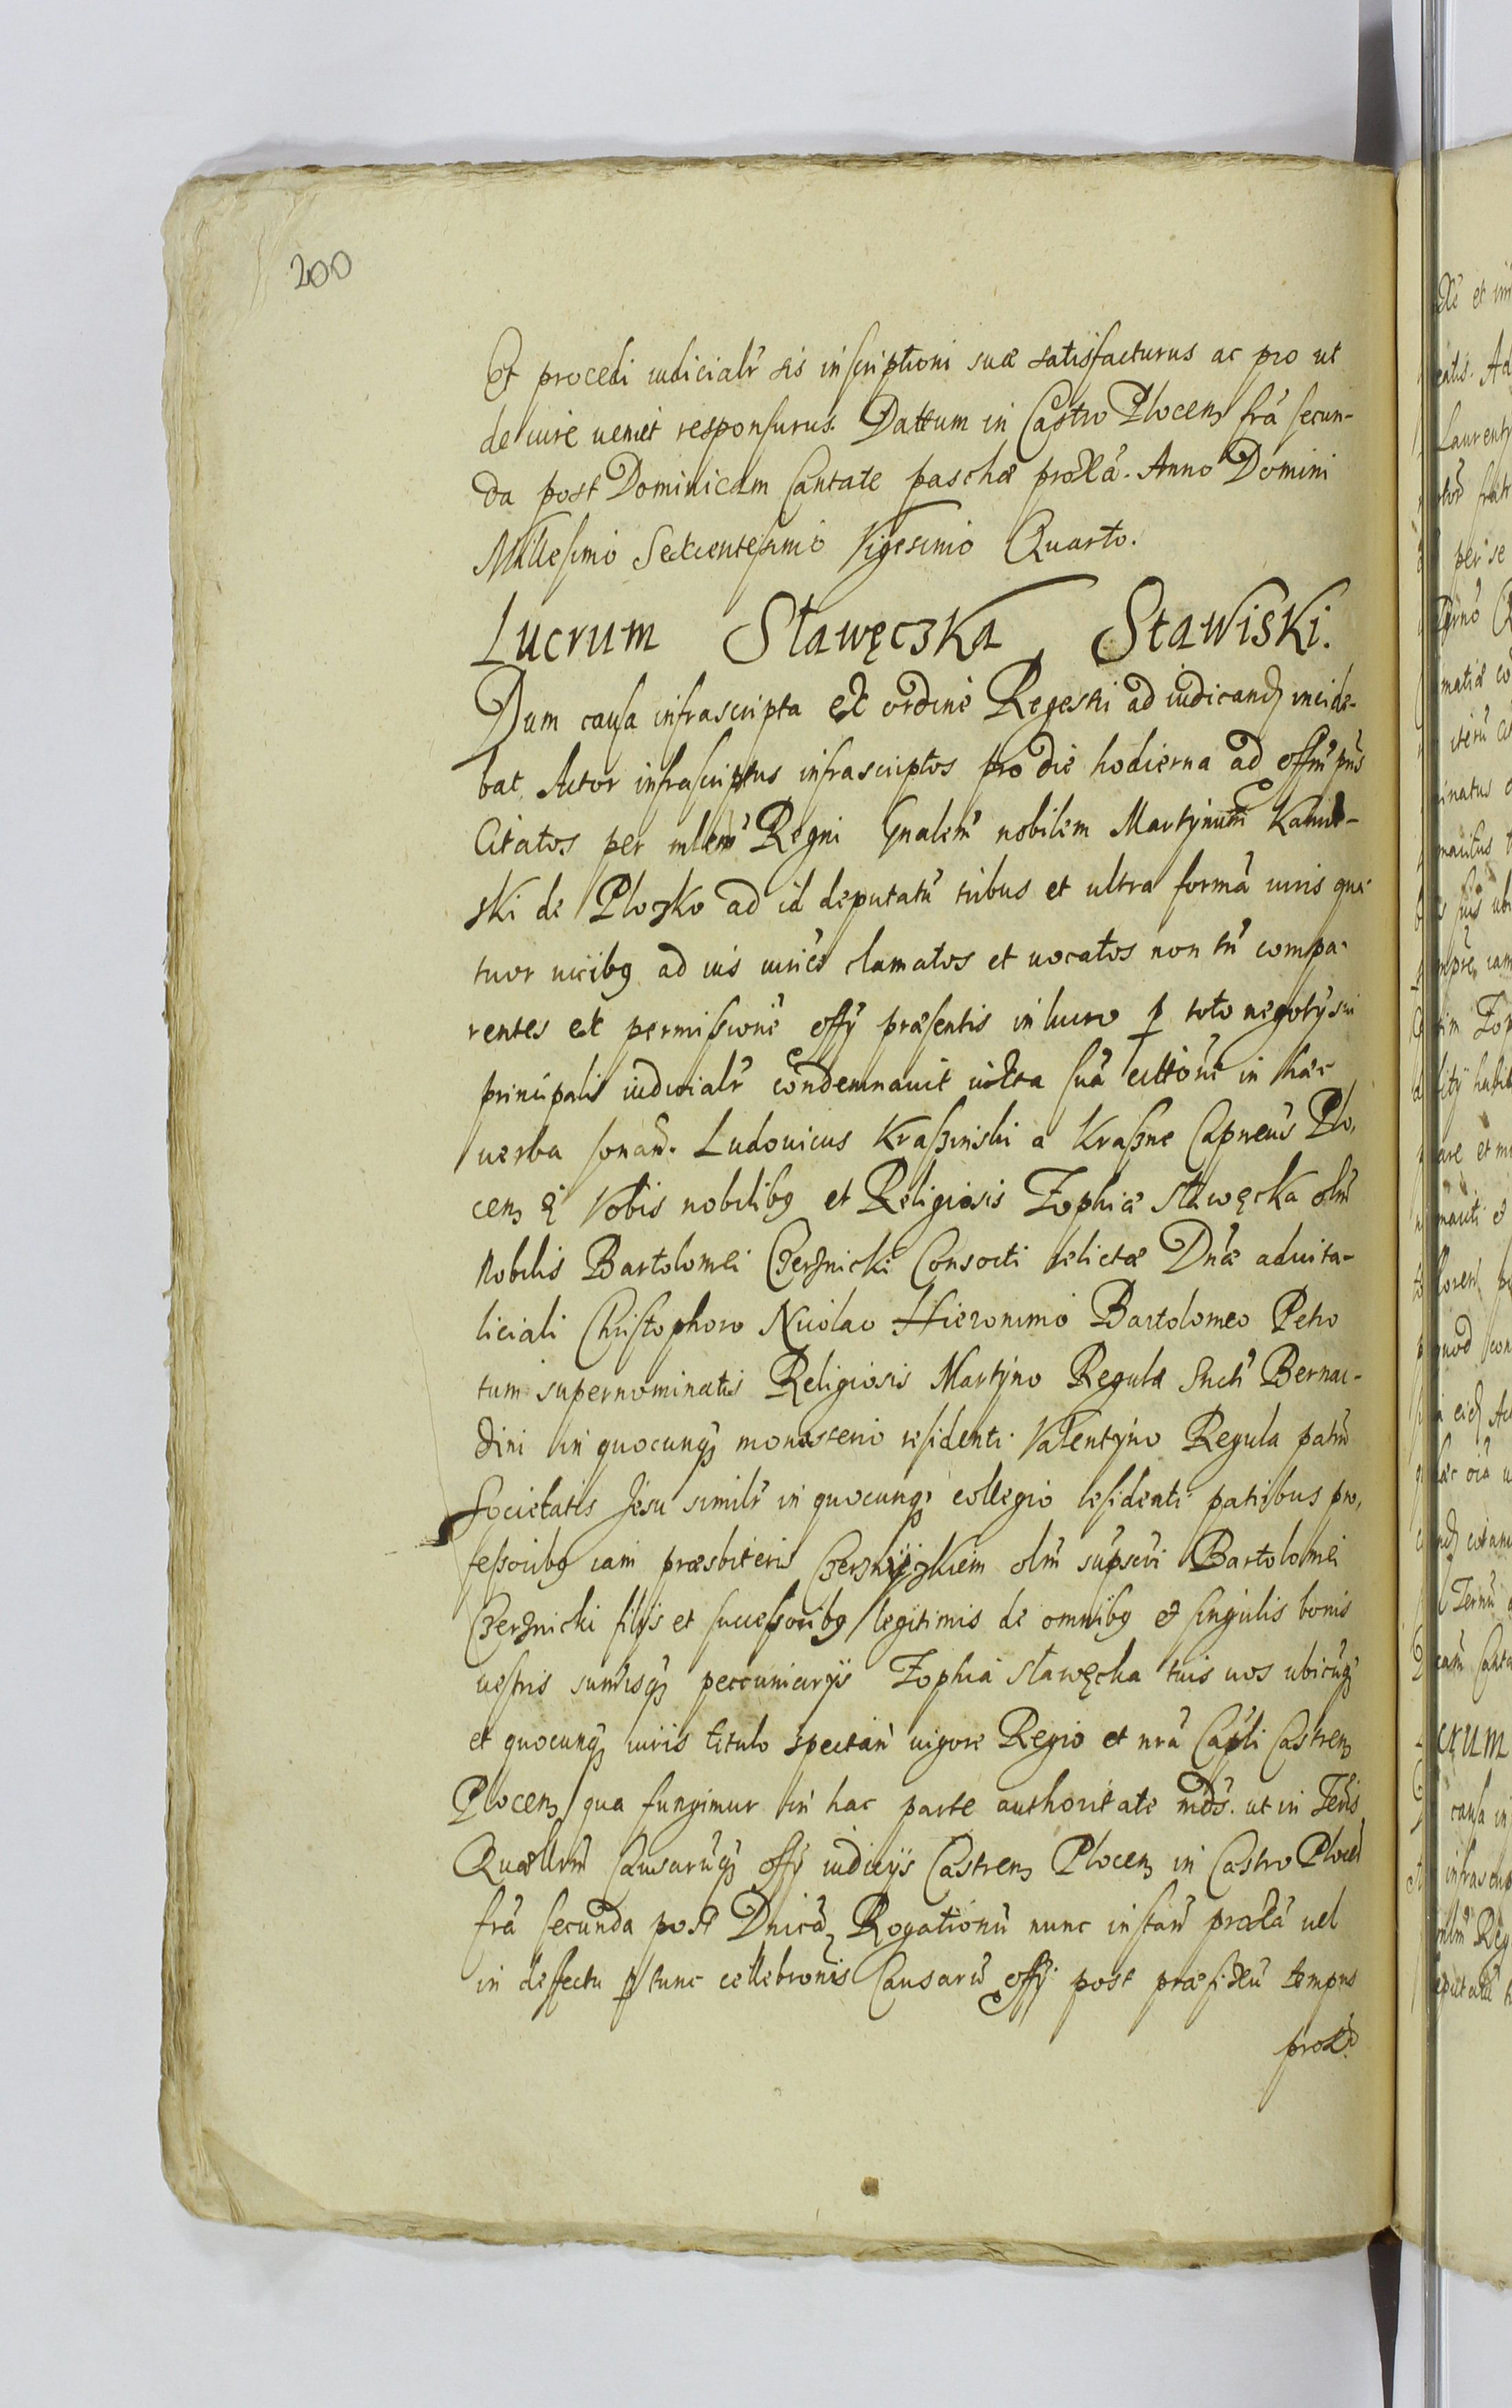 200
Et procedi iudicialr sis inscriptioni suæ satisfacturus ac pro ut
de iure ueniet responsurus. Dattum in Castro Plocen̄ frā secun-
da post Dominicam Cantate paschæ proxā. Anno Domini
Millesimo Sexcentesimo Vigesimo Quarto.
Lucrum Sławęczka Stawiski.
Dum causa infrascripta ex ordine Regestri ad iudicand̄ incide-
bat Actor infrascriptus infrascriptos pro die hodierna ad offm̄ pn̄s
Citatos per mlem̄ Regni Gnalem̄ nobilem Martynum
ski de Ploczko ad id deputatū tribus et ultra formā iuris qua-
tuor uicibq ad ius iurico clamatos et uocatos non tn̄ compa-
rentes ex permissione offy præsentis in lucro p toto negotys sui
principalis iudicialr condemnauit iuxta suā cittōne in hæc
uerba sonan̄. Ludouicus Kraszinski a Kraszne Capneus Plo,
cen̄ Vobis nobilibq et Religiosis Zophiæ Sławęcka olm̄
Nobilis Bartolomei Czernicki Consorti relictæ Dnæ aduita-
liciali Christophoro Nicolao Hieronimo Bartolomeo Petro
tum supernominatis Religiosis Martyno Regulæ Scti Bernar-
dini in quocunq monasterio residenti Valentyno Regula patrū
Societatis Jesu similr in quocunq collegio residenti patribus pro,
fessoribq iam præsbiteris olm̄ supscri Bartolomei
Czernicki filys et successoribq legitimis de omnibq et singulis bonis
uestris sumisq peccuniarys Zophia Sławęcka tuis uos ubicūq
et quocunq iuris titulo spectan̄ uigore Regio et nrā Capli Castren̄
Plocen̄ qua fungimur in hac parte authoritate mds. ut in Tenis
Quærellrm̄ Causarūq offy iudicys Castren̄ Plocen̄ in Castro Plocen̄
frā secunda post Dnicā Rogationū nunc instan̄ proxā uel
in defectu p tunc cellebronis Causarū offy post præfixū tempus
prox.